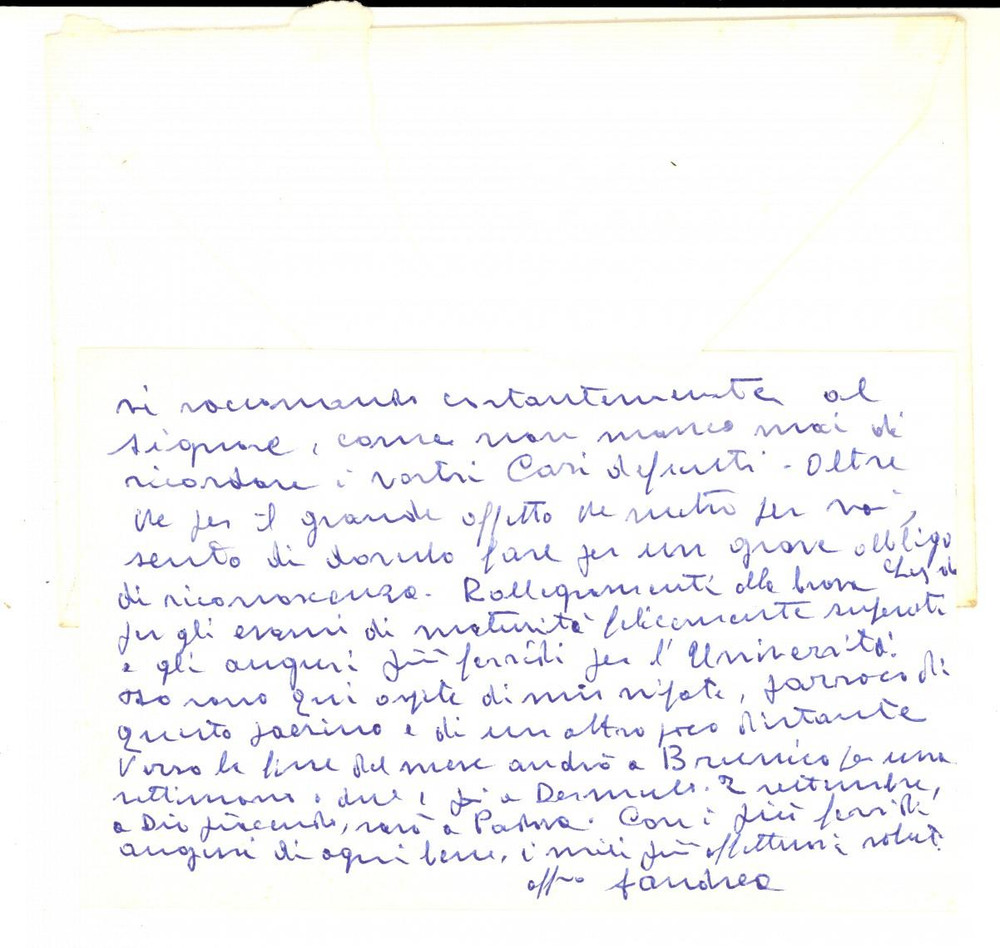 vi raccomando costantemente al
Signore, come non manco mai di
ricordare i vostri Cari defunti. Oltre
che per il grande affetto che nutro per voi,
sento di doverlo fare per un grave obbligo
di riconoscenza. Rallegramenti alla brava
per gli esami di maturità felicemente superati
e gli auguri più fervidi per l'Università.
Io sono qui ospite di mio nipote, parroco di
questo paesino e di un altro poco distante
Verso la fine del mese andrò a Brunico per una
settimana o due e poi a Dermulo. 2 settembre,
a Dio piacendo, sarò a Padova. Con i più fervidi
auguri di ogni bene, i miei più affettuosi saluti
aff.mo